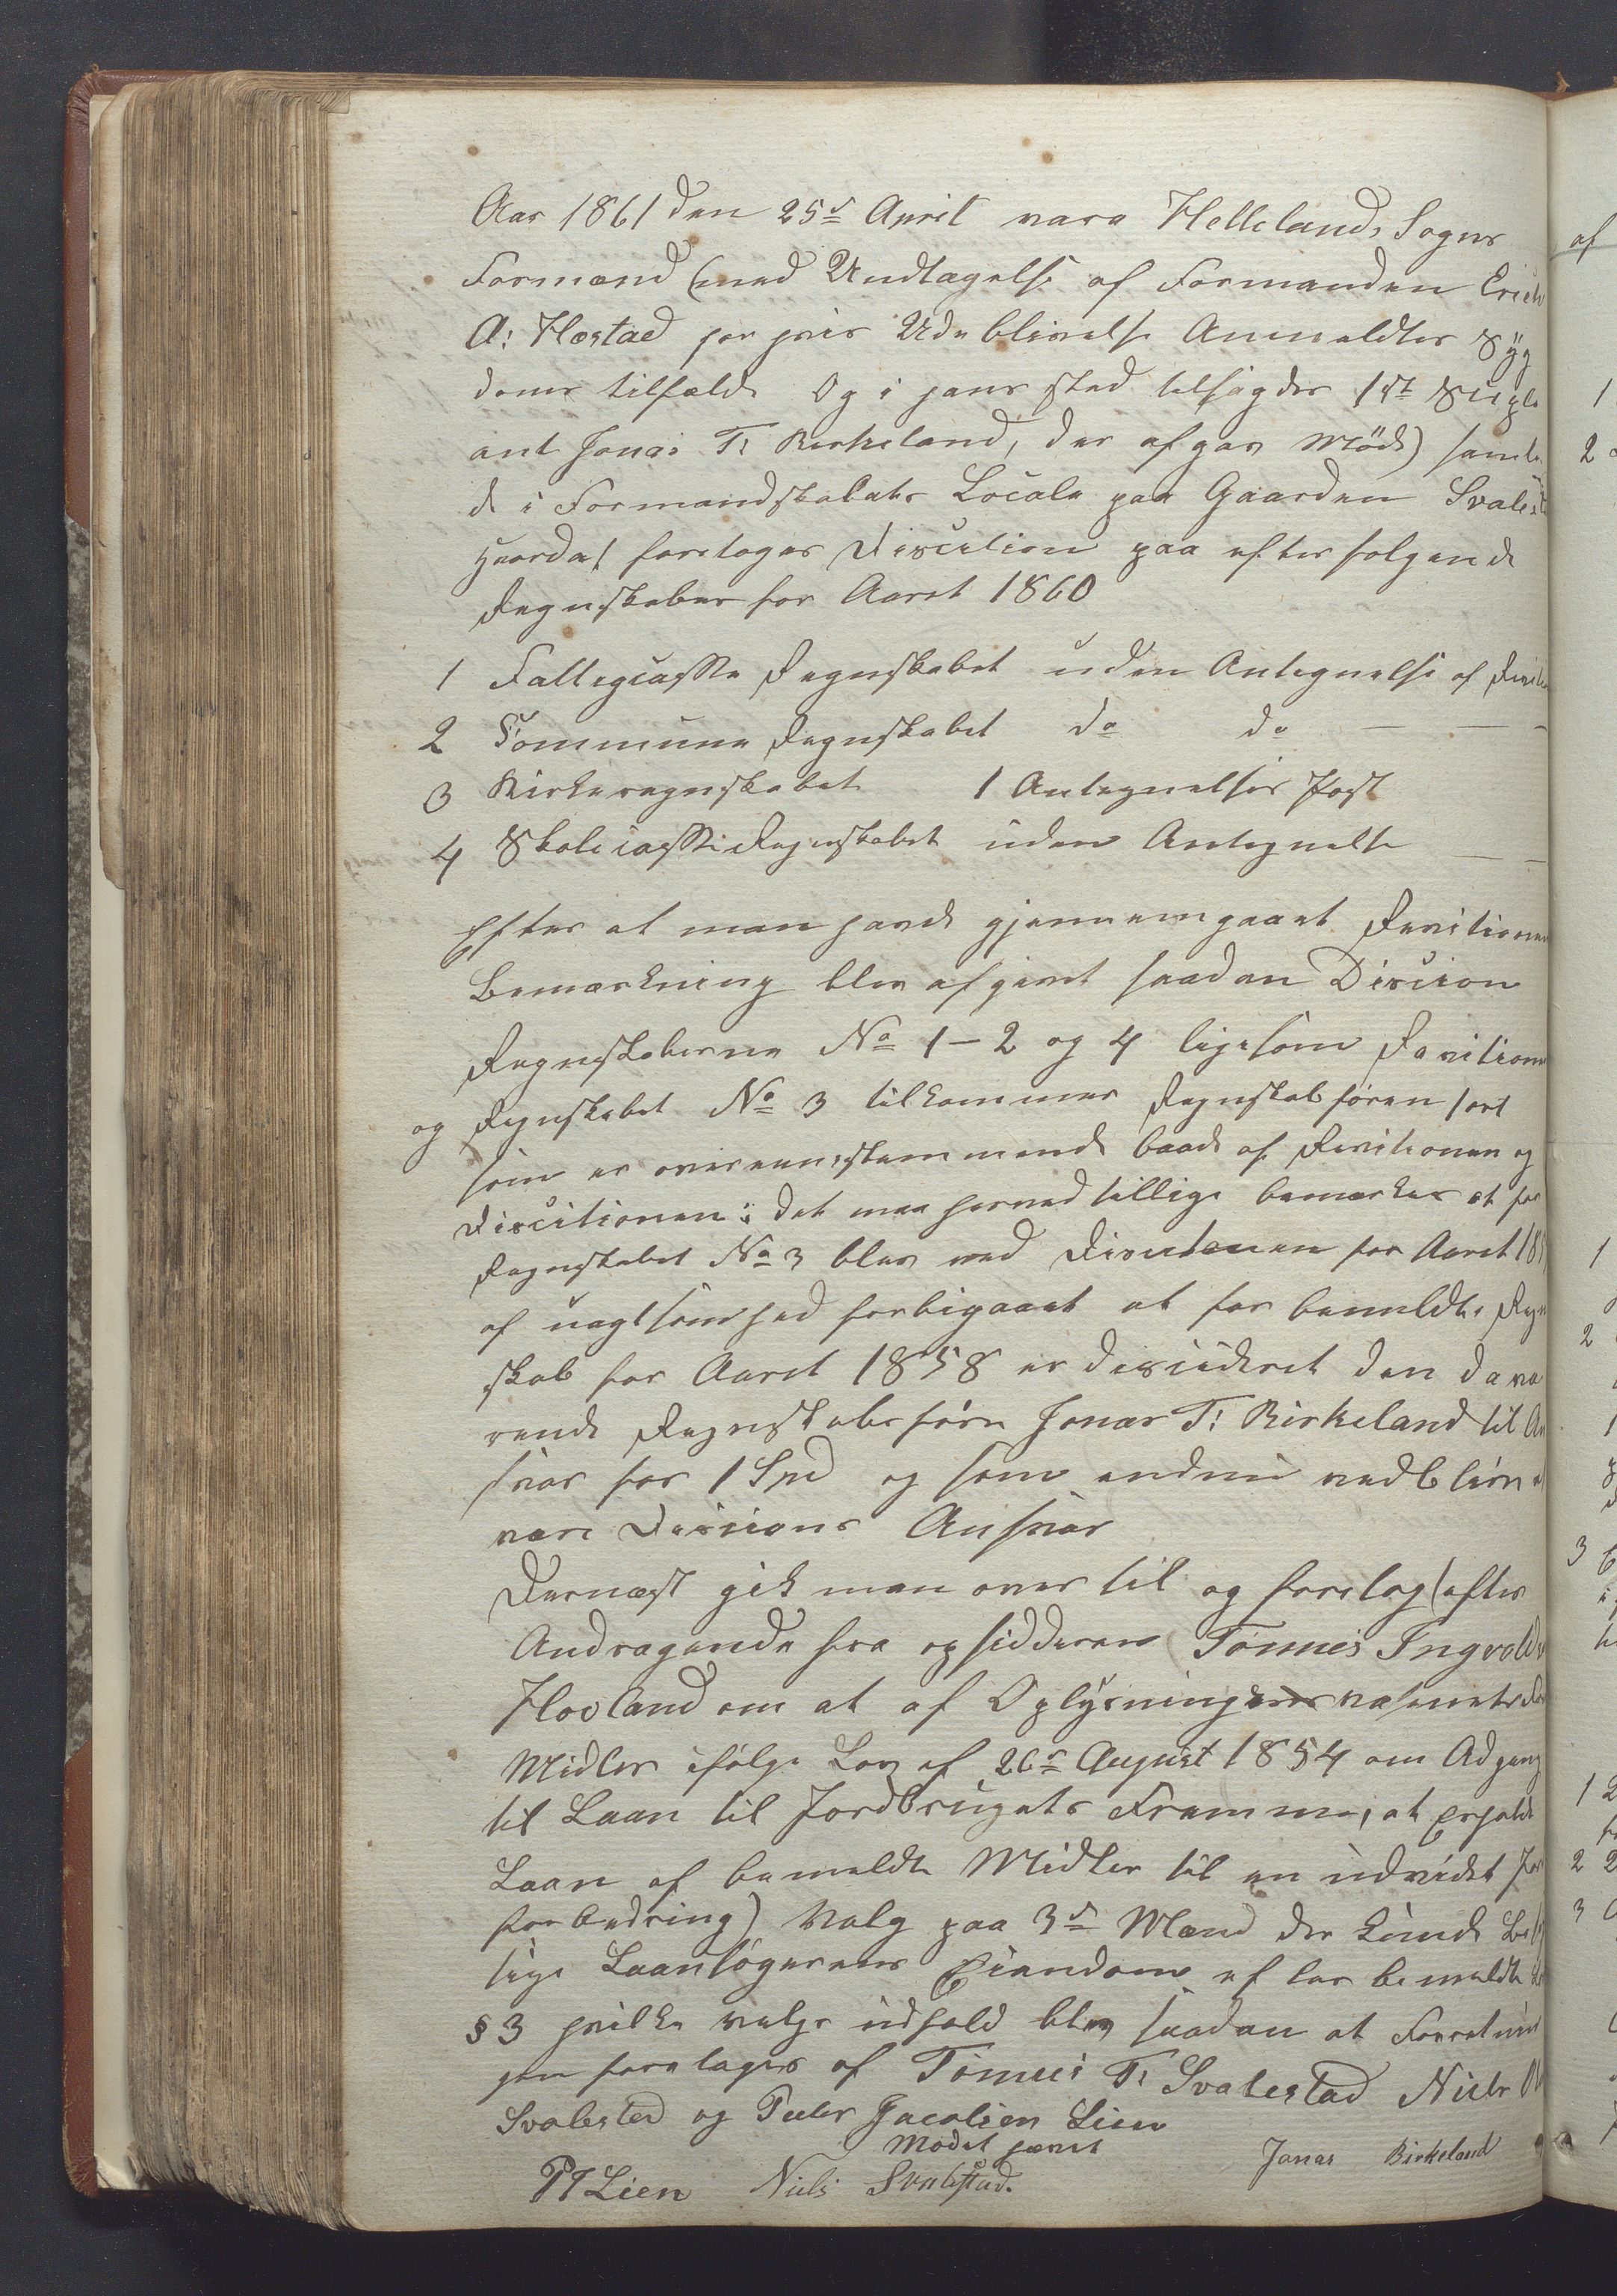 Aar 1861 den 25de April vare Hellelands Sogns
Formænd (med Undtagelse af Formanden Erich
A: Hæstad for hvis Udeblivelse Anmeldtes Syg
doms tilfælde Og i hans sted tilsagdes 1ste Suple
ant Jonas T: Birkeland, der afgav Møde) samle
de i Formandskabets Locale paa Gaarden Svalest
hvorda foretoges Discition paa efterfølgende
Regnskaber for Aaret 1860
1 Fattigcasse Regnskabet uden Antegnelse af Revis
2 Commune Regnskabet do do — — —
3 Kirkeregnskabet 1 Antegnelses Post
4 Skolecasse Regnskabet uden Antegnelse — —
Efter at man havde gjennemgaaet Revitionen
Bemærkning blev afgivet saadan Discion
Regnskaberne No 1 - 2 og 4 ligesom Revitionen
og Regnskabet No 3 tilkommer Regnskabsføren
som er overeensstemmende baade af Revitionen og
Discitionen: det maa herved tillige bemærkes at for
Regnskabet No 3 blev ved Discitionen for Aaret 18
af uagtsomhed forbigaaet at for bemeldte Regn
skab for Aaret 1858 er desideret den dava
rende Regnskabsfører Jonas T: Birkeland til An
svar for 1 Spd og som endnu vedbliver at
være Discions Ansvar
Dernæst gik man over til og foretog (efter
Andragende fra opsidderen Tønnes Ingvolds
Hovland om at af Oplysningsvæsenets
Midler ifølge Lov af 26de August 1854 om Adgang
til Laan til Jordbrugets Fremme, at Erholde
Laan af bemeldte Midler til en udvidet Jor
forbedring) Valg paa 3de Mænd der kunde Be
sige Laansøgerens Eiendom efter bemeldte
§ 3 hvilke valgs udfald blev saadan at Forretnin
gen foretages af Tønnes T: Svalestad Niels
Svalestad og Peder Jacobsen Lien
Mødet hævet
PJ Lien Niels Svalestad. Jonas Birkeland